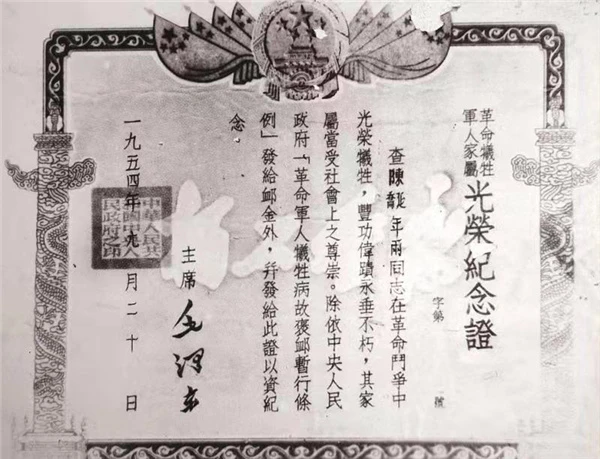 革命犧牲
軍人家屬
光榮紀念證
字第 號
查陳年兩同志在革命鬥爭中
光榮犧牲，豐功偉蹟永垂不朽，其家
屬當受社會上之尊崇。除依中央人民
政府「革命軍人犧牲病故褒卹暫行條
例」發給卹金外，幷發給此證以資紀
念。
主席 毛澤東
一九五四年九月二十日
中華人民共
和國中央人
民政府之印